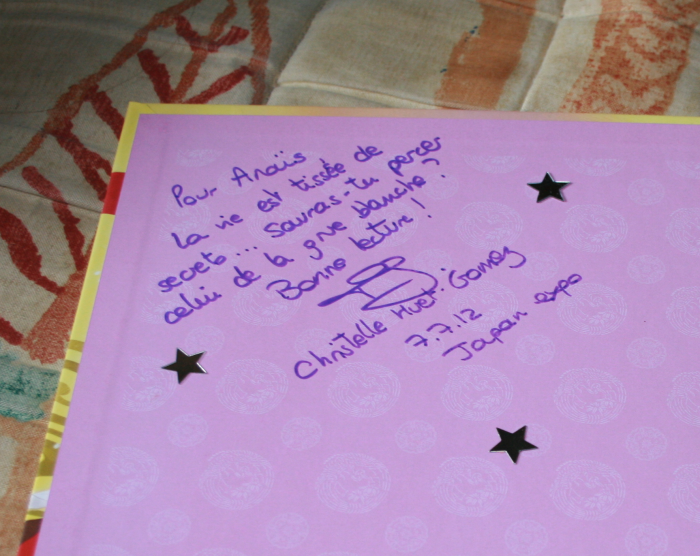 Pour Anaïs
La vie est tissée de
secrets... Sauras-tu percer
celui de la grue blanche?
Bonne lecture!
Christelle Huet-Gomez
7.7.12
Japan expo